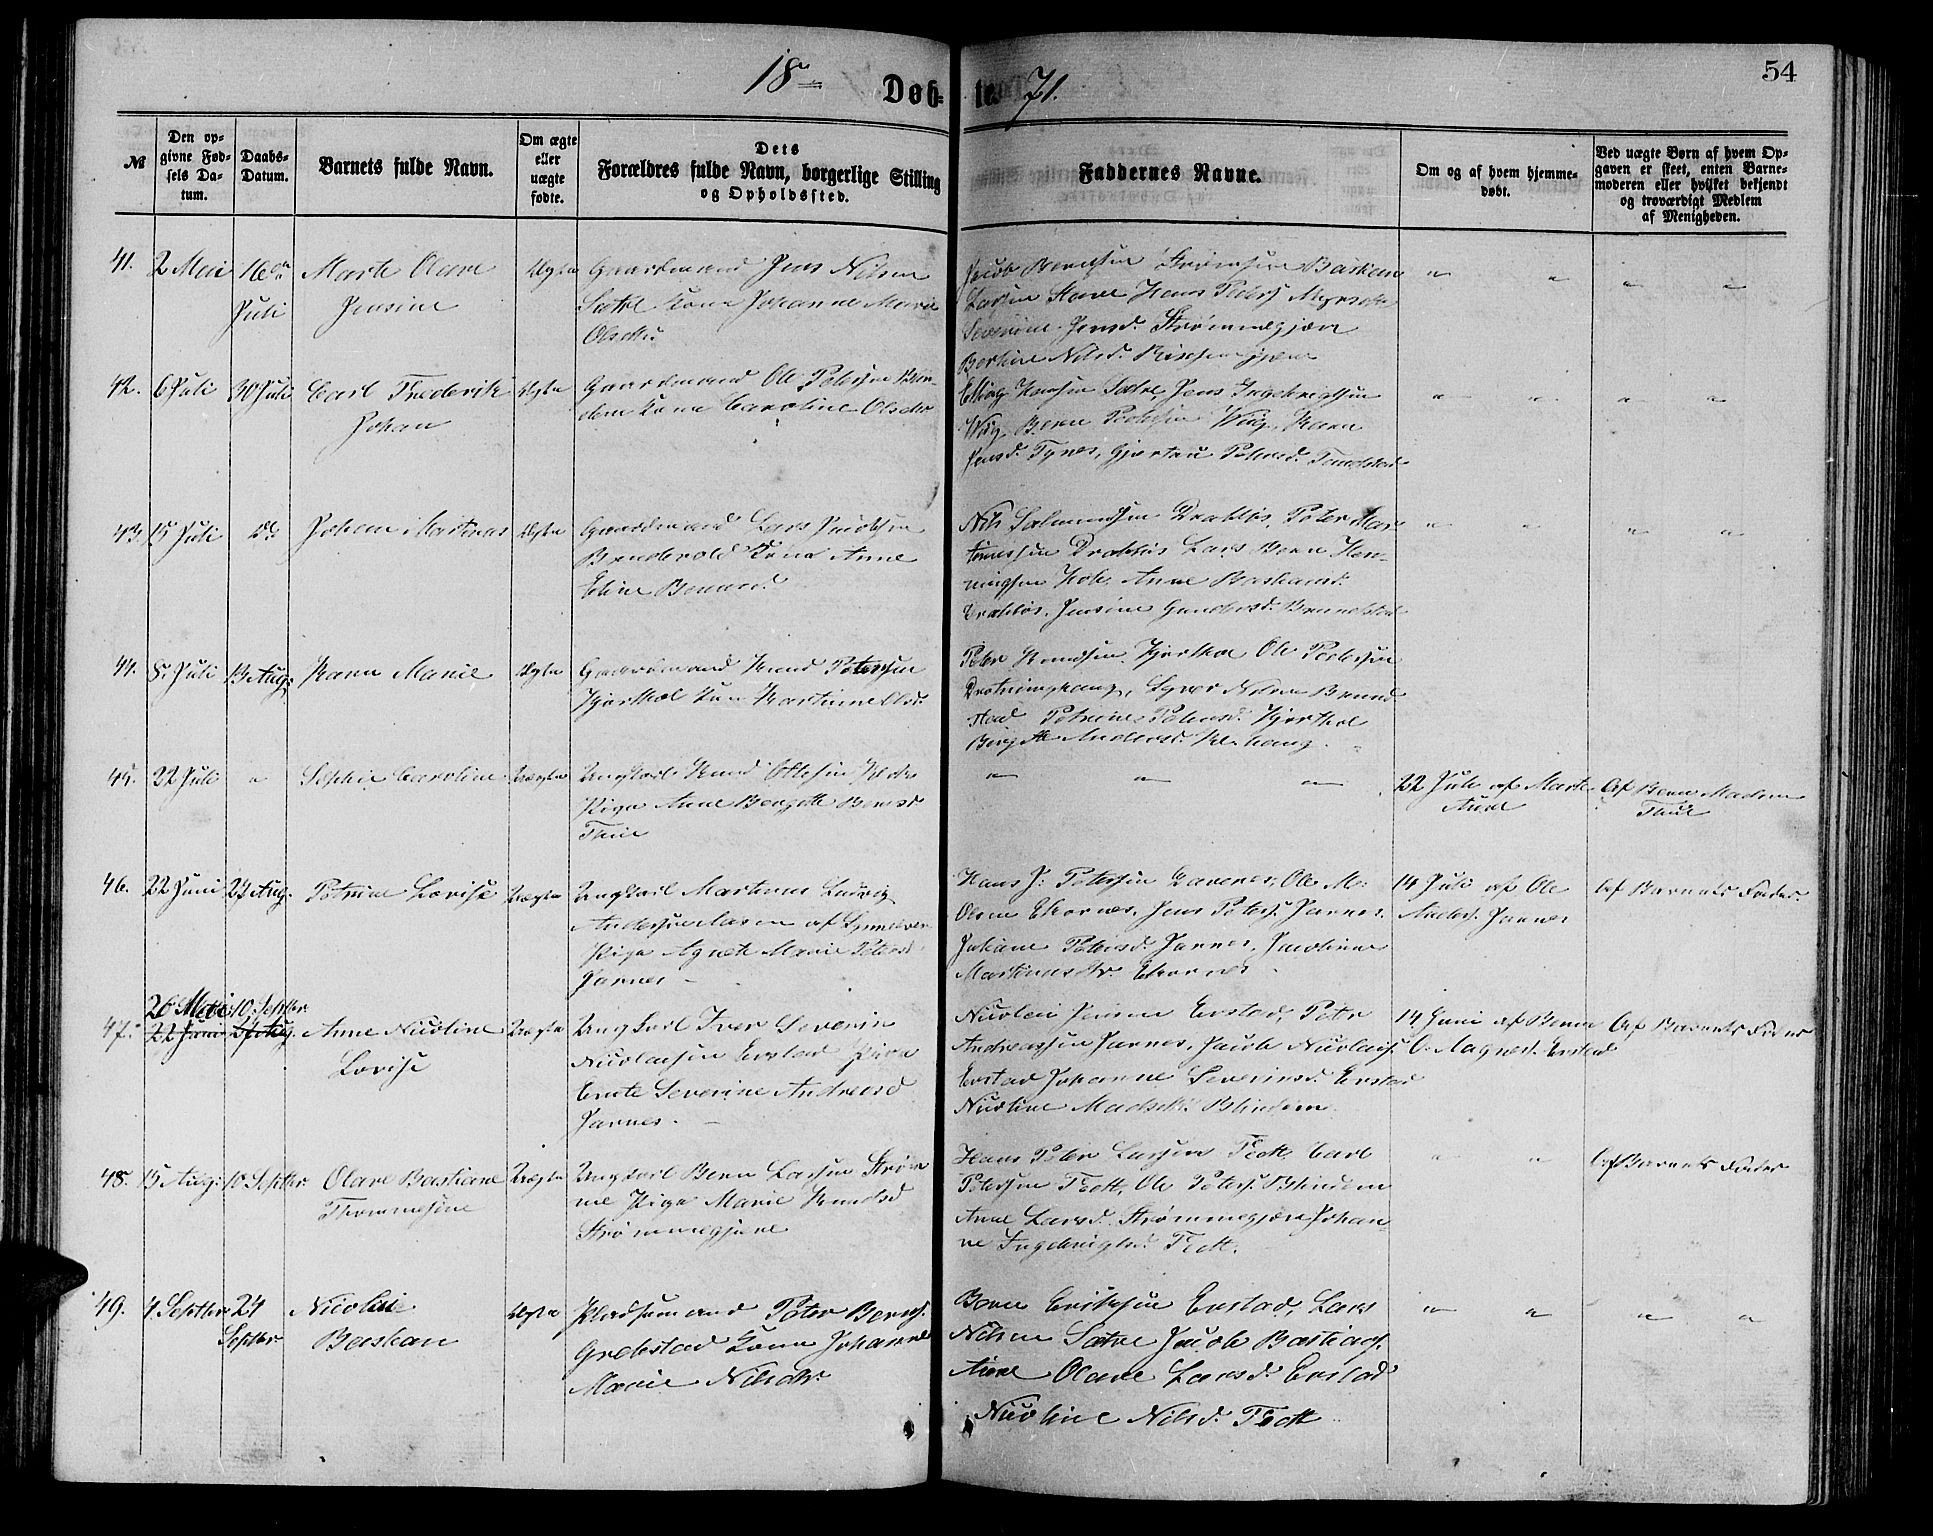 18 71.
Døbte.
54
№
Den opgivne Fødsels Datum.
Daabs-Datum.
Barnets fulde Navn.
Om ægte eller uægte fødte.
Dets Forældres fulde Navn, borgerlige Stilling og Opholdssted.
Faddernes Navne.
Om og af hvem hjemmedøbt.
Ved uægte Børn af hvem Opgaven er skeet, enten Barnemoderen eller hvilket bekjendt og troværdigt Medlem af Menigheden.
41. 2 Mai 16de Juli
Marte Olave
Jensine
Ægte
Gaardmand Jens Nilsen
Sætre Kone Johanne Marie
Olsdtr
Jacob Berntsen Strømmen Bastian
Larsen Hans Peters.
Severine Jensd. Strømmegjære
Berthine Nilsd.
42. 6 Juli 30 Juli
Carl Frederik
Johan
Ægte
Gaardmand Ole Petersen Blin-
dem Kone Caroline Olsdtr
Elling Knudsen Sætre Jens Ingebrigtsen
Viig, Bernt Petersen Viig, Karen
Jensd. Tynes, Gjertrue Petersd.
43. 15 Juli do
Johan Martinus
Ægte
Gaardmand Lars Jacobsen
Kone Anne
Eline Berntsd.
Nils Salmundsen Drabløs, Peter Mar-
tinussen Drabløs Lars Bernt Hen-
ningsen Anne Bastiansd.
Drabløs, Jensine Gundersd. Brunstad
44. 8 Juli 13 Aug.
Karen Marie
Ægte
Gaardmand Knud Petersen
Hjorthol Kone Martinne Elsd.
Peter Knudsen Hjorthol Ole Pedersen
Drotninghaug, Syver Nilsen Brund-
stad Petrine Petersd. Hjorthol
Birgitte Andersd.
45. 22 Juli "
Sophie Caroline
Uægte
Ungkarl Knud Ottesen
Pige Anne Bergitte Berntsd.
Thue
" " "
22 Juli af Marte
Aure
Af Bernt Madsen
Thue
46. 22 Juni 27 Aug.
Petrine Lovise
Uægte
Ungkarl Martinus Ludvig
Andersen Aasen af Synnelven
Pige Agnete Marie Petersd.
Jarnes
Hans J. Petersen Ole M.
Olsen Ekornes, Jens Peters. Jarnes.
Juliane Petersd. Jarnes,
Martinusdtr. Ekornes
14 Juli af Ole
Anders. Jarnes
Af Barnets Fader
47. 26 Mai 10 Septbr
22 Juni 27 Aug.
Anne Nicoline
Lovise
Uægte
Ungkarl Iver Severin
Nicolaisen Erstad Pige
Grete Severine Andreasd.
Jarnes
Nicolai Jensen Erstad, Peter
Andreassen Jarnes, Jacob Nicolais.
Erstad Johanne Severinsd. Erstad
Nicoline Madsdtr. Blindem
14 Juni af Bernt
O. Magnes. Erstad
Af Barnets Fader
48. 15 Aug. 10 Septbr
Olave Bastiane
Thommesine
Uægte
Ungkarl Bernt Larsen Strøm-
me Pige Marie Knudsd.
Strømmegjære
Hans Peter Larsen Fedt, Carl
Petersen Fedt, Ole Peters. Blindem
Anne Larsd. Strømmegjære Johan-
ne Ingebrigtsd. Fedt.
" "
Af Barnets Fader
49. 4 Septbr 24
Septbr
Nicolai
Bastian
Ægte
Pladsemand Peter Bernts.
Grebstad Kone Johanne
Marie Nilsdtr.
Bernt Eriksen Erstad, Lars
Nilsen Sætre Jacob Bastians.
Aure Olave Larsd. Erstad
Nicoline Nilsd. Fedt
" " " "